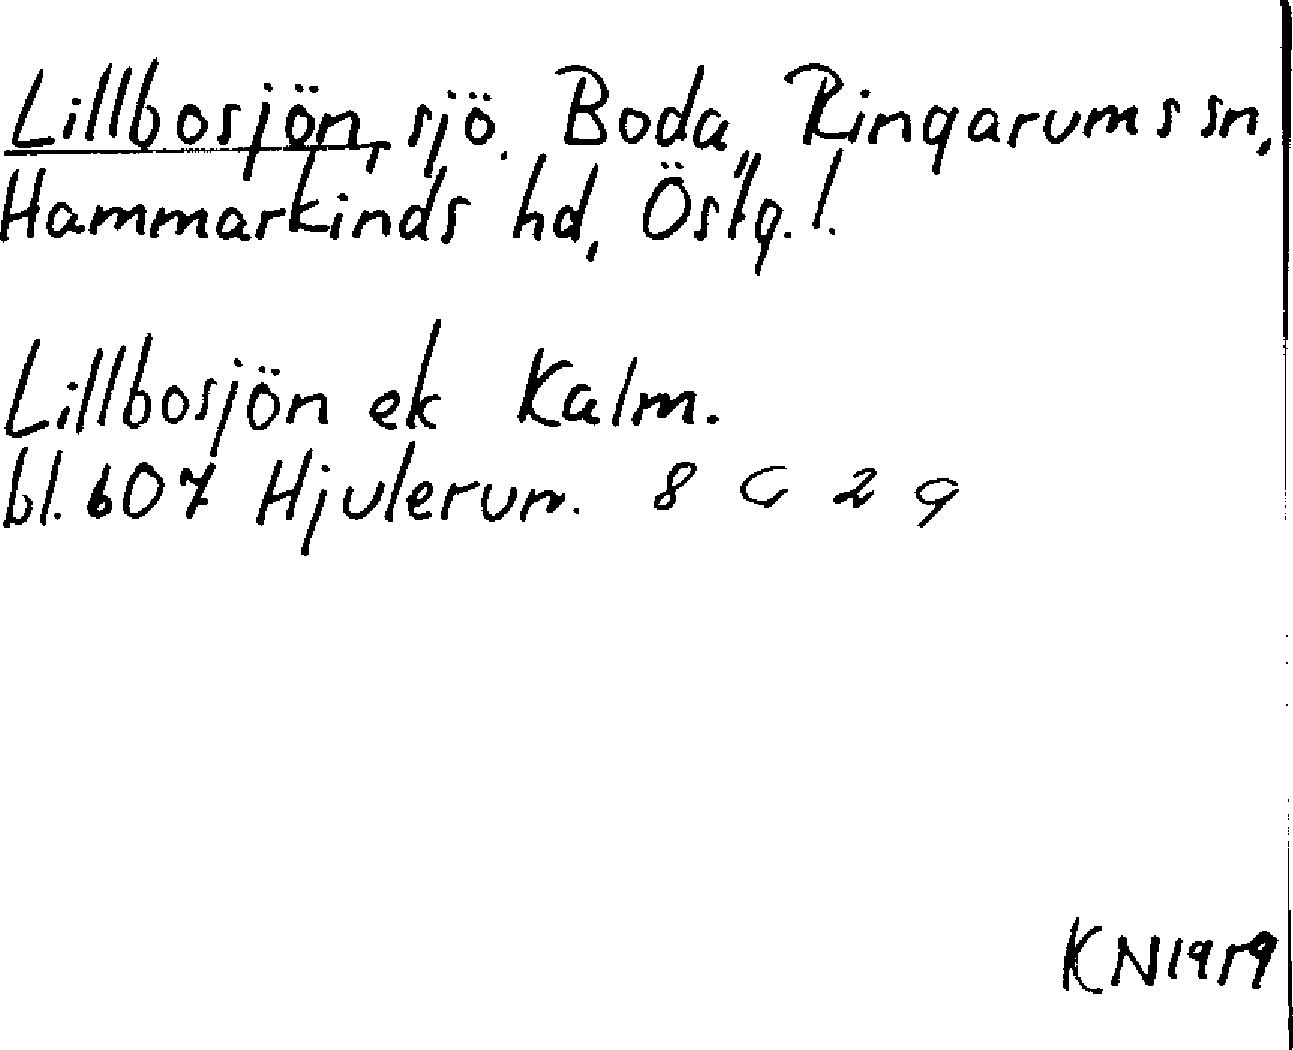 Lillbosjön, sjö. Boda, Ringarums sn,
Hammarkinds hd, Östg. l.
Lillbosjön ek Kalm.
bl. 607 Hjulerum. 8 G 2 g
KN1959